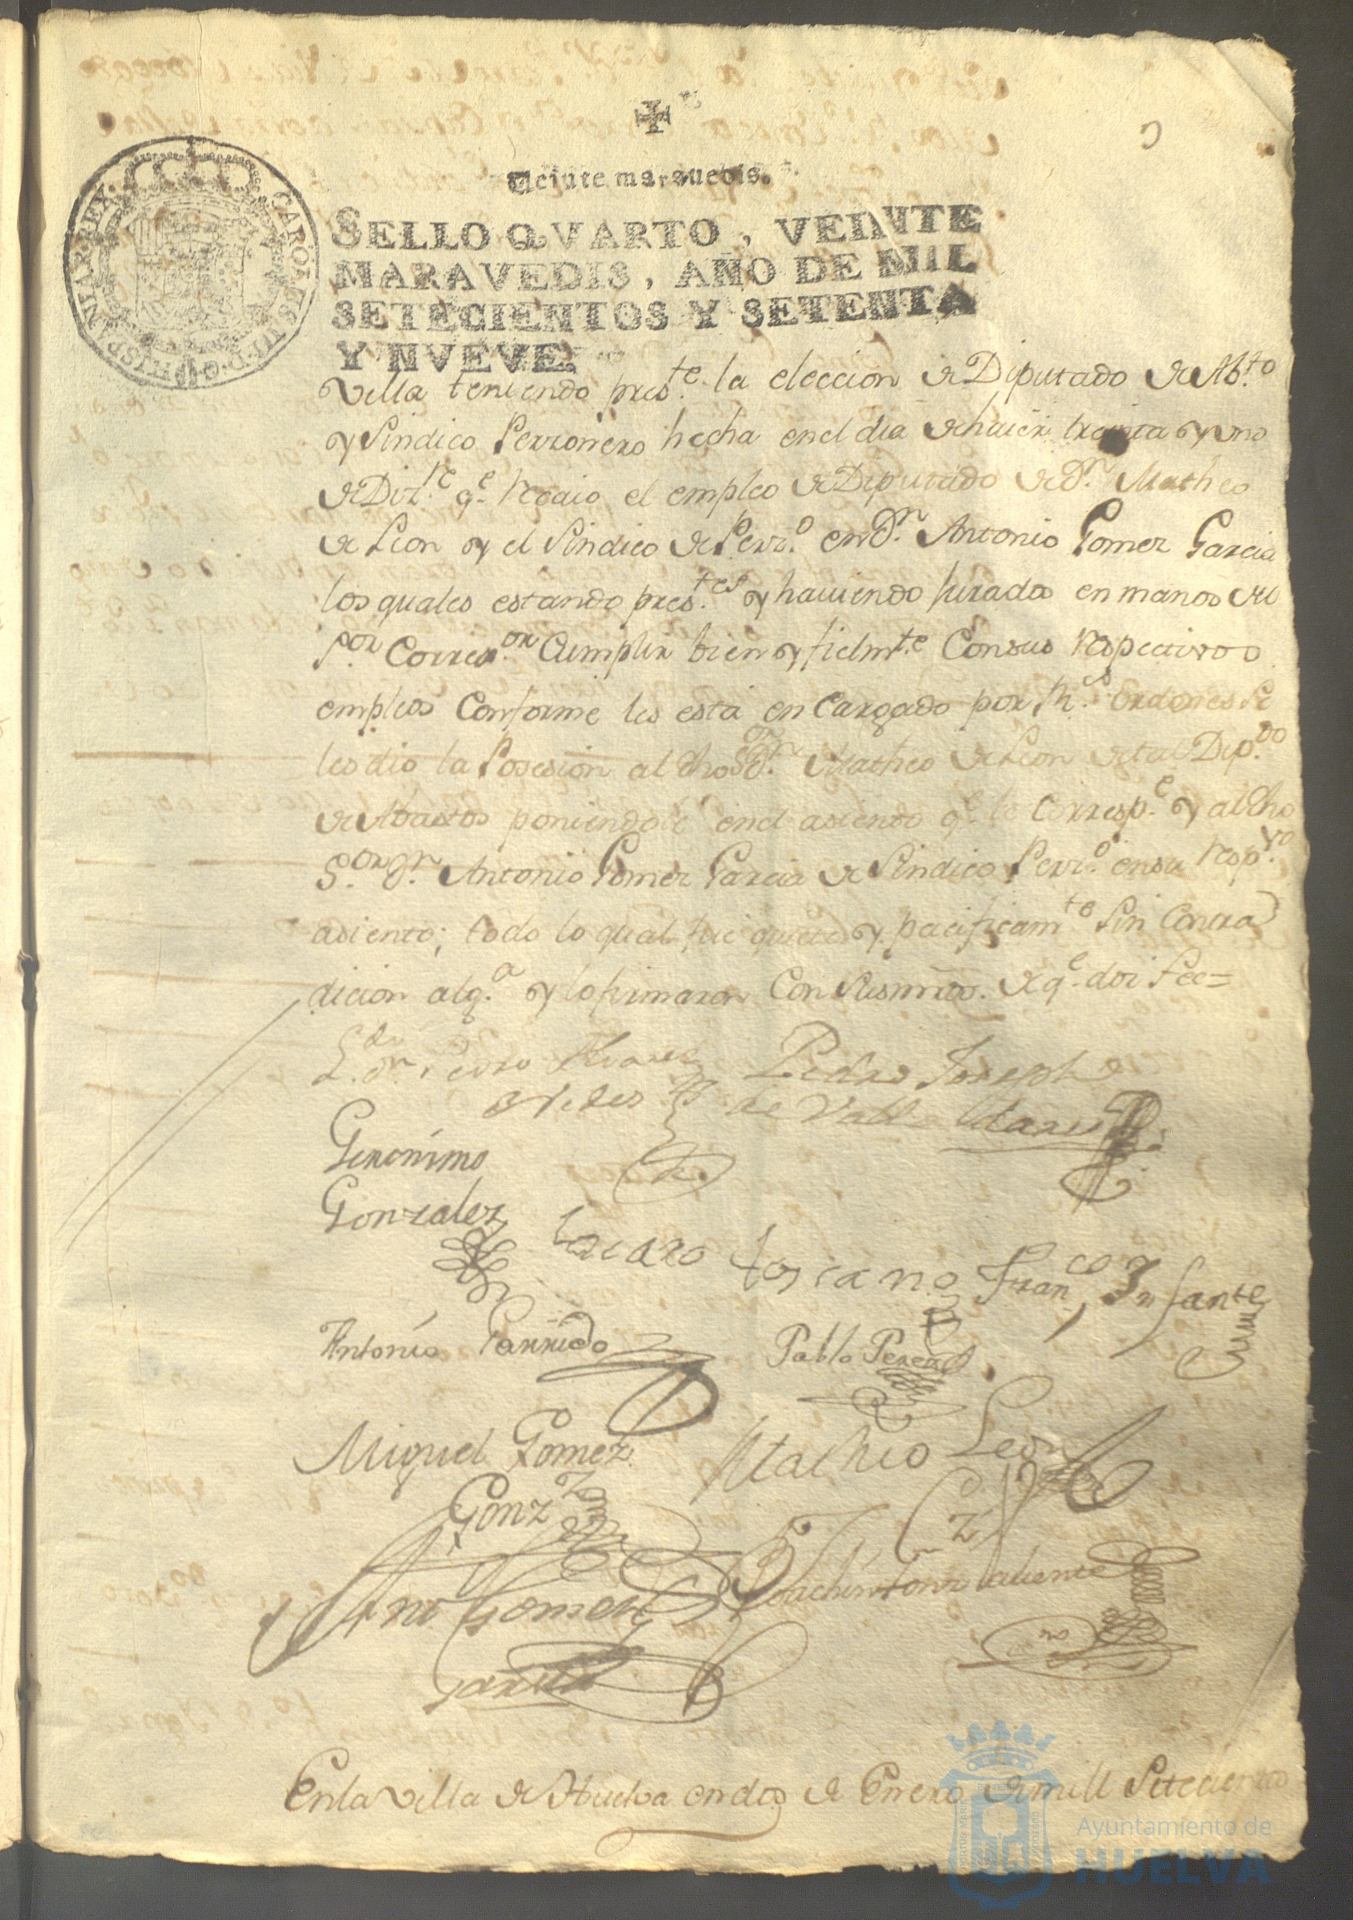 Veinte maravedis.
SELLO QVARTO, VEINTE
MARAVEDIS, AÑO DE MIL
SETECIENTOS Y SETENTA
Y NVEVE.
CAROLUS III D G HISPANIAR REX
Villa teniendo pres.te la eleccion de Diputado de Ab.to
y Sindico Perzonero hecha en el dia de haier treinta y uno
de Diz.re q.e recaio el empleo de Diputado de Dn. Matheo
de Leon y el Sindico de Perz.o en Dn. Antonio Gomez Garcia
los quales estando pres.tes y haviendo Jurado en manos del
S.or Correx.or Cumplir bien y fielm.te Con sus respectivos
empleos Conforme les está en cargado por R.s ordenes Se
les dio la Posesion al dho S.or Dn. Matheo de Leon de tal Dip.do
de Abastos poniendole en el asiento q.e le Corresp.e y al dho
S.or Dn. Antonio Gomez Garcia de Sindico Perz.o en su resp.vo
asiento; todo lo qual fue quieta y pacificam.te Sin Contra
dicion alg.a y lo firmaron Con Sus mrds. de q.e doi Fee=
L.do Dn. Pedro Pedro Joseph
de Valladares
Geronimo
Gonzalez
Lazaro toscano Fran.co Infante
Antonio Garrido Pablo Perez
Miguel Gomez Mathio Leon
Gonz.z
Ant.o Gomez Joachin Valiente
Garcia
En la Villa de Huelva en dos de Enero de mill Setecientos
Ayuntamiento de
HUELVA